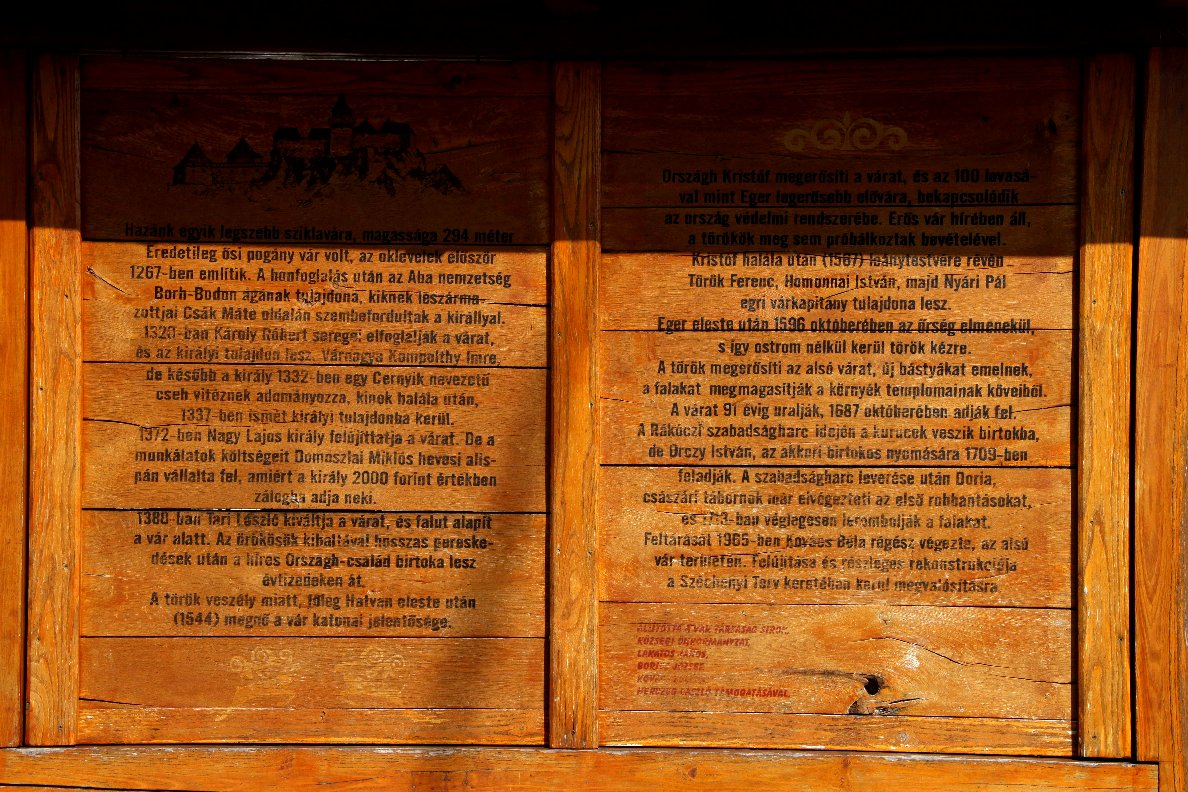 Hazánk egyik legszebb sziklavára, magassága 294 méter
Eredetileg ősi pogány vár volt, az oklevelek először
1267-ben említik. A honfoglalás után az Aba nemzetség
Borh-Bodon ágának tulajdona, kiknek leszárma-
zottjai Csák Máté oldalán szembefordultak a királlyal.
1320-ban Károly Róbert seregei elfoglalják a várat,
és az királyi tulajdon lesz. Várnagya Kompolthy Imre,
de később a király 1332-ben egy Cernyik nevezetű
cseh vitéznek adományozza, kinok halála után,
1337-ben ismét királyi tulajdonba kerül.
1372-ben Nagy Lajos király felújíttatja a várat. De a
munkálatok költségeit Domoszlai Miklós hevesi alis-
pán vállalta fel, amiért a király 2000 forint értékben
zálogba adja neki.
1380-ban Tari László kiváltja a várat, és falut alapít
a vár alatt. Az örökösök kihaltával hosszas pereske-
dések után a híres Országh-család birtoka lesz
évtizedeken át.
A török veszély miatt, főleg Hatvan eleste után
(1544) megnő a vár katonai jelentősége.
Országh Kristóf megerősíti a várat, és az 100 lovasá-
val mint Eger legerősebb elővára, bekapcsolódik
az ország védelmi rendszerébe. Erős vár hírében áll,
a törökök meg sem próbálkoztak bevételével.
Kristóf halála után (1567) leánytestvére révén
Török Ferenc, Homonnai István, majd Nyári Pál
egri várkapitány tulajdona lesz.
Eger eleste után 1596 októberében az őrség elmenekül,
s így ostrom nélkül kerül török kézre.
A török megerősíti az alsó várat, új bástyákat emelnek,
a falakat megmagasítják a környék templomainak köveiből.
A várat 91 évig uralják, 1687 októberében adják fel.
A Rákóczi szabadságharc idején a kurucek veszik birtokba,
de Orczy István, az akkori birtokos nyomására 1709-ben
feladják. A szabadságharc leverése után Doria,
császári tábornok már elvégezteti az első robbantásokat,
és 1713-ban véglegesen lerombolják a falakat.
Feltárását 1965-ben Kovács Béla régész végezte, az alsó
vár területén. Felújítása és részleges rekonstrukciója
a Széchenyi Terv keretében kerül megvalósításra.
VÁR TÁRSASÁG SIROK,
KÖZSÉGI ÖNKORMÁNYZAT,
LAKATOS JÁNOS,
JÓZSEF
HERCZEG LÁSZLÓ TÁMOGATÁSÁVAL